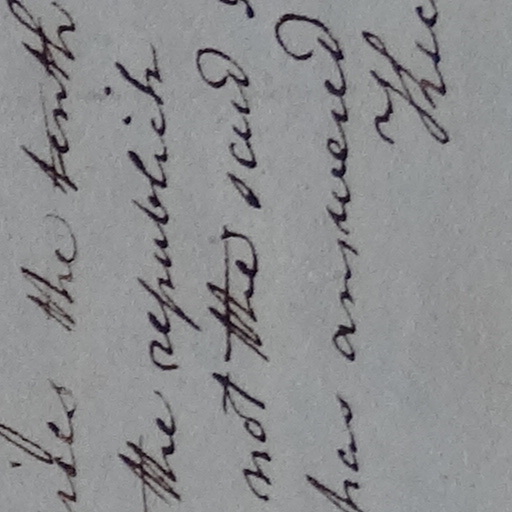 the tenth
the republick
not the said
has answered
The